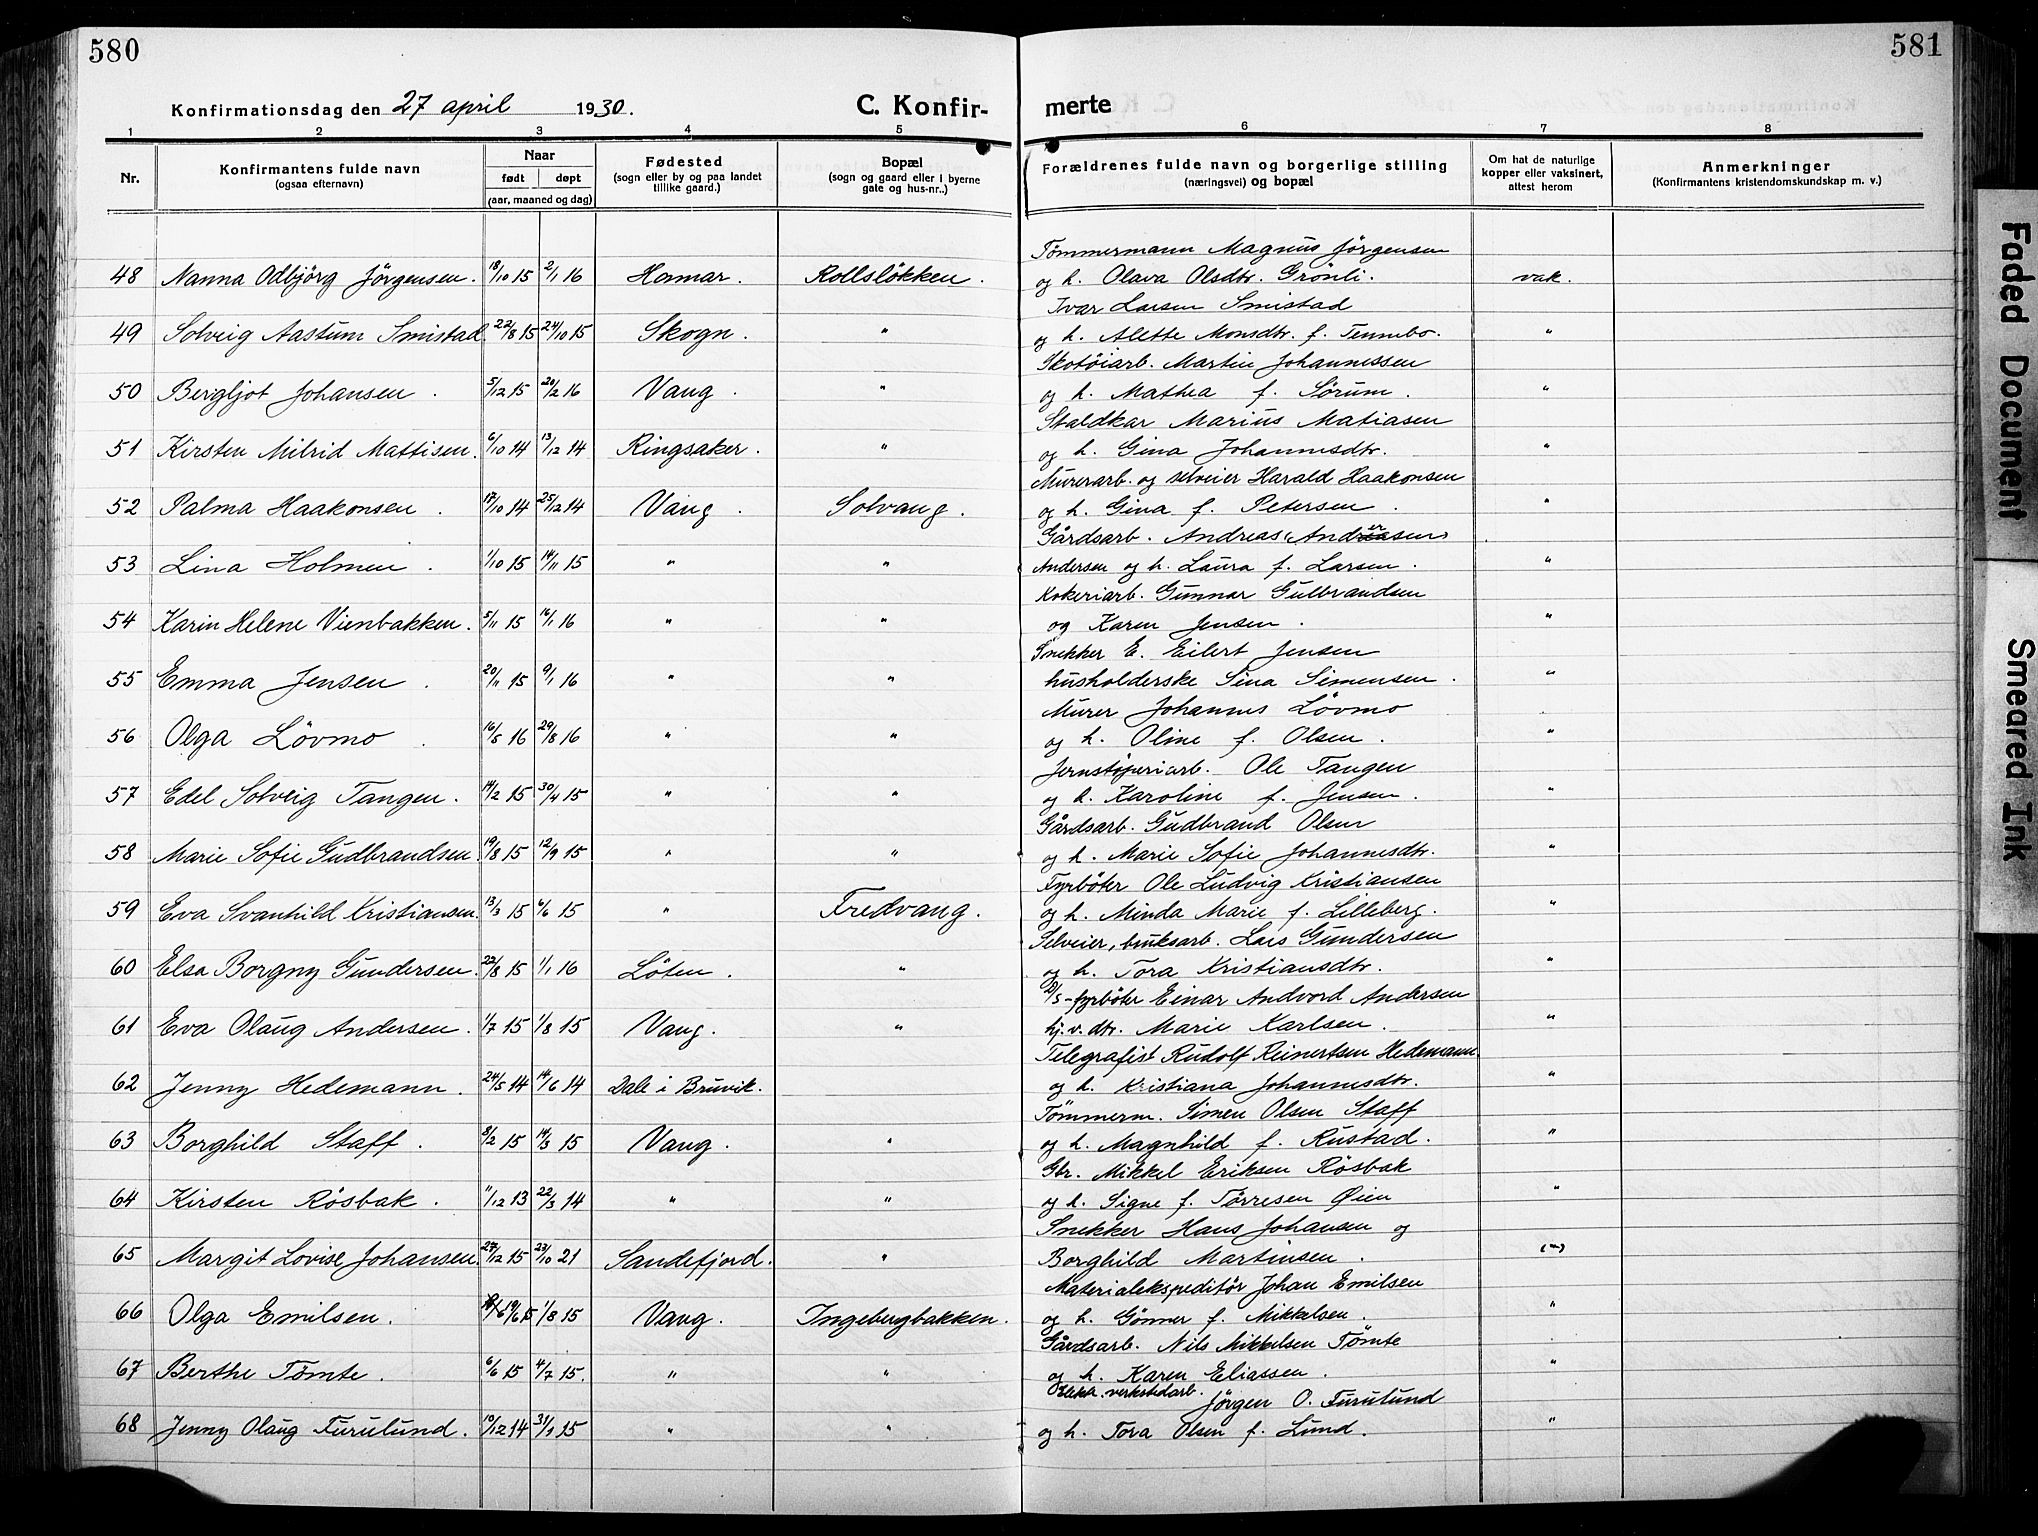 580
581
Konfirmationsdag den 27 april 1930.
C. Konfir- merte
1 2 3 4 5 6 7 8
Nr.
Konfirmantens fulde navn
(ogsaa efternavn)
Naar
født døpt
(aar, maaned og dag)
Fødested
(sogn eller by og paa landet
tillike gaard.)
Bopæl
(sogn og gaard eller i byerne
gate og hus-nr..)
Forældrenes fulde navn og borgerlige stilling
(næringsvei) og bopæl
Om hat de naturlige
kopper eller vaksinert,
attest herom
Anmerkninger
(Konfirmantens kristendomskundskap m. v.)
Tömmermann Magnus Jörgensen
48 Nanna Odbjörg Jörgensen. 18/10 15 2/1 16 Hamar. Rollslökken. og h. Olava Olsdtr. Grönli. vak.
Ivar Larsen Smistad
49 Solveig Aastum Smistad. 22/8 15 24/10 15 Skogn. " og h. Alette Monsdtr. f. Tennebo. "
Skotöiarb. Martin Johannessen
50 Bergljot Johansen. 5/12 15 20/2 16 Vang. " og h. Mathea f. Sörum. "
Staldkar Marius Matiasen
51 Kirsten Milrid Mattisen. 6/10 14 13/12 14 Ringsaker. " og h. Gina Johannesdtr. "
Murerarb. og selveier Harald Haakonsen
52 Palma Haakonsen. 17/10 14 25/12 14 Vang. Solvang. og h. Gina f. Petersen. "
Gårdsarb. Andreas Andreasen
53 Lina Holmen. 1/10 15 14/11 15 " " Andersen og h. Laura f. Larsen. "
Kokeriarb. Gunnar Gulbrandsen
54 Karin Helene Vienbakken. 5/11 15 16/1 16 " " og Karen Jensen. "
Snekker E. Eilert Jensen
55 Emma Jensen. 20/11 15 9/1 16 " " husholderske Sina Simensen. "
Murer Johannes Lövmo
56 Olga Lövmo. 16/5 16 29/8 16 " " og h. Oline f. Olsen. "
Jernstöperiarb. Ole Tangen
57 Edel Solveig Tangen. 14/2 15 30/4 15 " " og h. Karoline f. Jensen. "
Gårdsarb. Gudbrand Olsen
58 Marie Sofie Gudbrandsen. 19/8 15 12/9 15 " " og h. Marie Sofie Johannesdtr. "
Fyrböter Ole Ludvig Kristiansen
59 Eva Svanhild Kristiansen. 13/3 15 6/6 15 " Fredvang. og h. Minda Marie f. Lilleberg. "
Selveier, bruksarb. Lars Gundersen
60 Elsa Borgny Gundersen. 22/8 15 1/1 16 Löten. " og h. Tora Kristiansdtr. "
D/s-fyrböter Einar Andvord Andersen
61 Eva Olaug Andersen. 1/7 15 1/8 15 Vang. " hj.v.dtr. Marie Karlsen. "
Telegrafist Rudolf Reinertsen Hedemann
62 Jenny Hedemann. 24/5 14 14/6 14 Dale i Bruvik. og h. Kristiana Johannesdtr. "
Tömmerm. Simen Olsen Staff
63 Borghild Staff. 8/2 15 14/3 15 Vang. " og h. Magnhild f. Rustad. "
Gbr. Mikkel Eriksen Rösbak
64 Kirsten Rösbak. 11/12 13 22/3 14 " " og h. Signe f. Törresen Øien "
Snekker Hans Johansen og
65 Margit Lovise Johansen. 27/12 15 23/10 21 Sandefjord. " Borghild Martinsen. (")
Materialekspeditör Johan Emilsen
66 Olga Emilsen. 19/6 15 1/8 15 Vang. Ingebergbakken. og h. Gönner f. Mikkelsen. "
Gårdsarb. Nils Mikkelsen Tömte
67 Berthe Tömte. 6/6 15 4/7 15. " " og h. Karen Eliassen. "
Elekt. verkstedarb. Jörgen O. Furulund
68 Jenny Olaug Furulund. 10/12 14 31/1 15 " " og h. Tora Olsen f. Lund. "
Faded Document
Smeared Ink